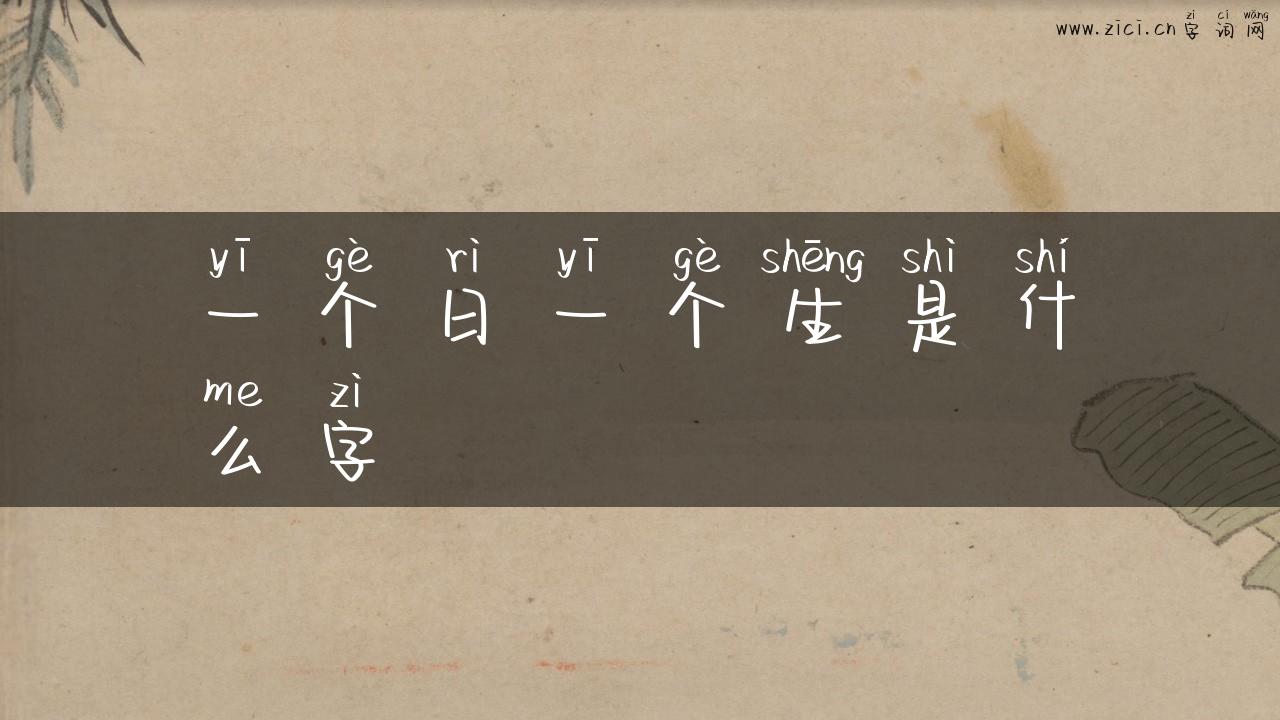 zì cí wǎng
www.zici.cn 字 词 网
yī gè rì yī gè shēng shì shí
一 个 日 一 个 生 是 什
me zì
么 字